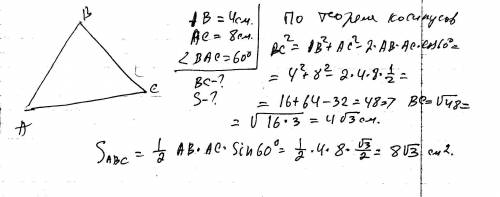 B
A
C
AB = 4см.
AC = 8см.
∠BAC = 60°
BC - ?
S - ?
По теореме косинусов
BC² = AB² + AC² - 2·AB·AC·cos60° =
= 4² + 8² - 2·4·8·½ =
= 16 + 64 - 32 = 48 => BC = √48 =
= √16·3 = 4√3 см.
S_ABC = ½ AB·AC·Sin60° = ½·4·8·√3/2 = 8√3 см2.